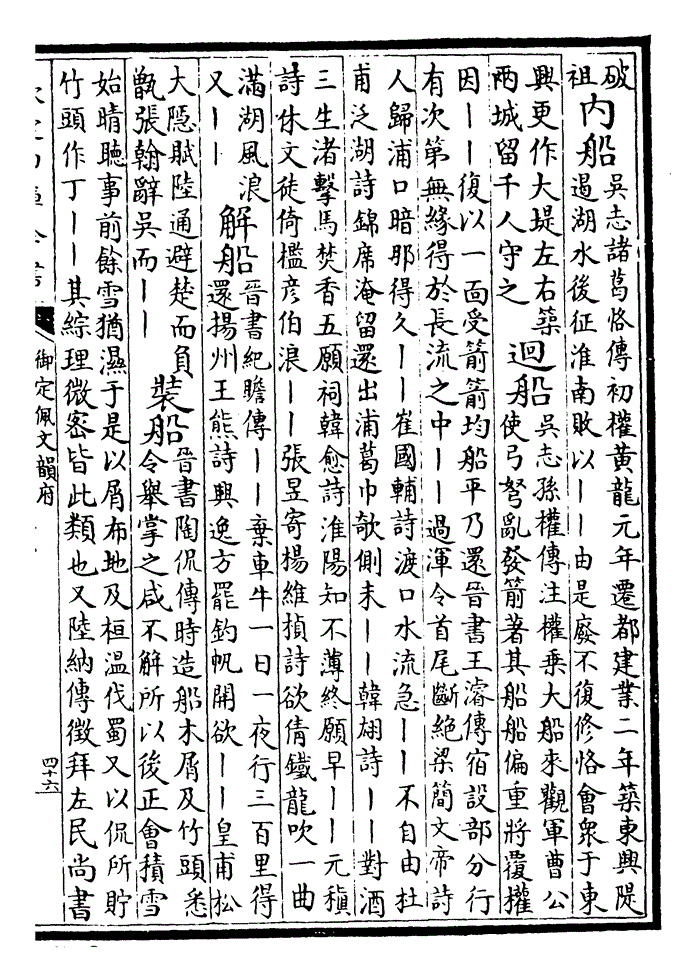 破
祖
内船
吳志諸葛恪傳初權黃龍元年遷都建業二年築東興隄
遏湖水後征淮南敗以｜｜由是廢不復修恪會衆于東
興更作大堤左右築
兩城留千人守之
迴船
吳志孫權傳注權乘大船來觀軍曹公
使弓弩亂發箭著其船船偏重將覆權
因｜｜復以一面受箭箭均船平乃還晉書王濬傳宿設部分行
有次第無緣得於長流之中｜｜過渾令首尾斷絕梁簡文帝詩
人歸浦口暗那得久｜｜崔國輔詩渡口水流急｜｜不自由杜
甫泛湖詩錦席淹留還出浦葛巾欹側未｜｜韓翃詩｜｜對酒
三生渚擊馬焚香五願祠韓愈詩淮陽知不薄終願早｜｜元稹
詩休文徒倚檻彥伯浪｜｜張昱寄楊維楨詩欲倩鐵龍吹一曲
滿湖風浪
又｜｜
解船
晉書紀瞻傳｜｜棄車牛一日一夜行三百里得
還揚州王熊詩興逸方罷釣帆開欲｜｜皇甫松
大隱賦陸通避楚而負
甑張翰辭吳而｜｜
裝船
晉書陶侃傳時造船木屑及竹頭悉
令舉掌之咸不解所以後正會積雪
始晴聽事前餘雪猶濕于是以屑布地及桓溫伐蜀又以侃所貯
竹頭作丁｜｜其綜理微密皆此類也又陸納傳徵拜左民尚書
御定佩文韻府
四十六